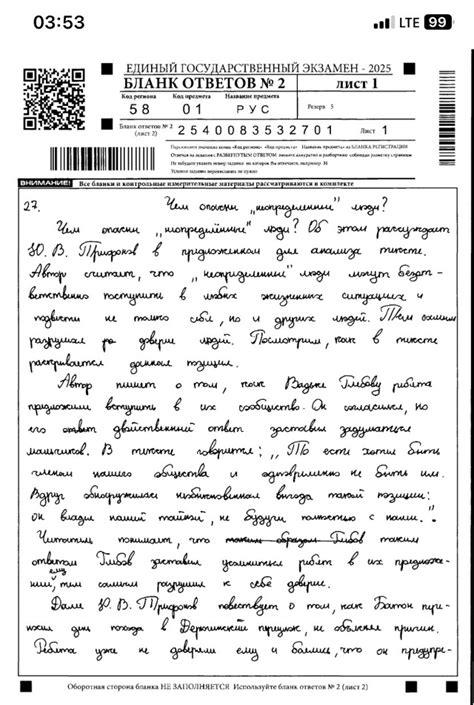 03:53
LTE 99
ЕДИНЫЙ ГОСУДАРСТВЕННЫЙ ЭКЗАМЕН - 2025
БЛАНК ОТВЕТОВ № 2
лист 1
Код региона Код предмета Название предмета
58 01 РУС
Резерв 5
Бланк ответов № 2 (лист 2)
2540083532701
Лист 1
ВНИМАНИЕ! Все бланки и контрольные измерительные материалы рассматриваются в комплекте
27. Чем опасны „неопределенные" люди?
Чем опасны „неопределенные" люди? Об этом рассуждает
Ю. В. Трифонов в предложенном для анализа тексте.
Автор считает, что „неопределенные" люди могут безот-
ветственно поступить в любых жизненных ситуациях и
подвести не только себя, но и других людей. Тем самым
разрушая доверие людей. Посмотрим, как в тексте
раскрывается данная позиция.
Автор пишет о том, как Вадьке Глебову ребята
предложили вступить в их сообщество. Он согласился, но
его двойственный ответ заставил задуматься
мальчиков. В тексте говорится: „То есть хотел быть
членом нашего общества и одновременно не быть им.
Вдруг обнаружилась необыкновенная выгода такой позиции:
он владел нашей тайной, не будучи полностью с нами."
Читатель понимает, что таким образом Глебов таким
ответом Глебов заставил усомниться ребят в их предложе-
нии ему, тем самым разрушил к себе доверие.
Далее Ю. В. Трифонов повествует о том, как Батон пере-
носил дни похода в Дерюгинский переулок, не объясняя причин.
Ребята уже не доверяли ему и боялись, что он предупре-
Оборотная сторона бланка НЕ ЗАПОЛНЯЕТСЯ Используйте бланк ответов № 2 (лист 2)